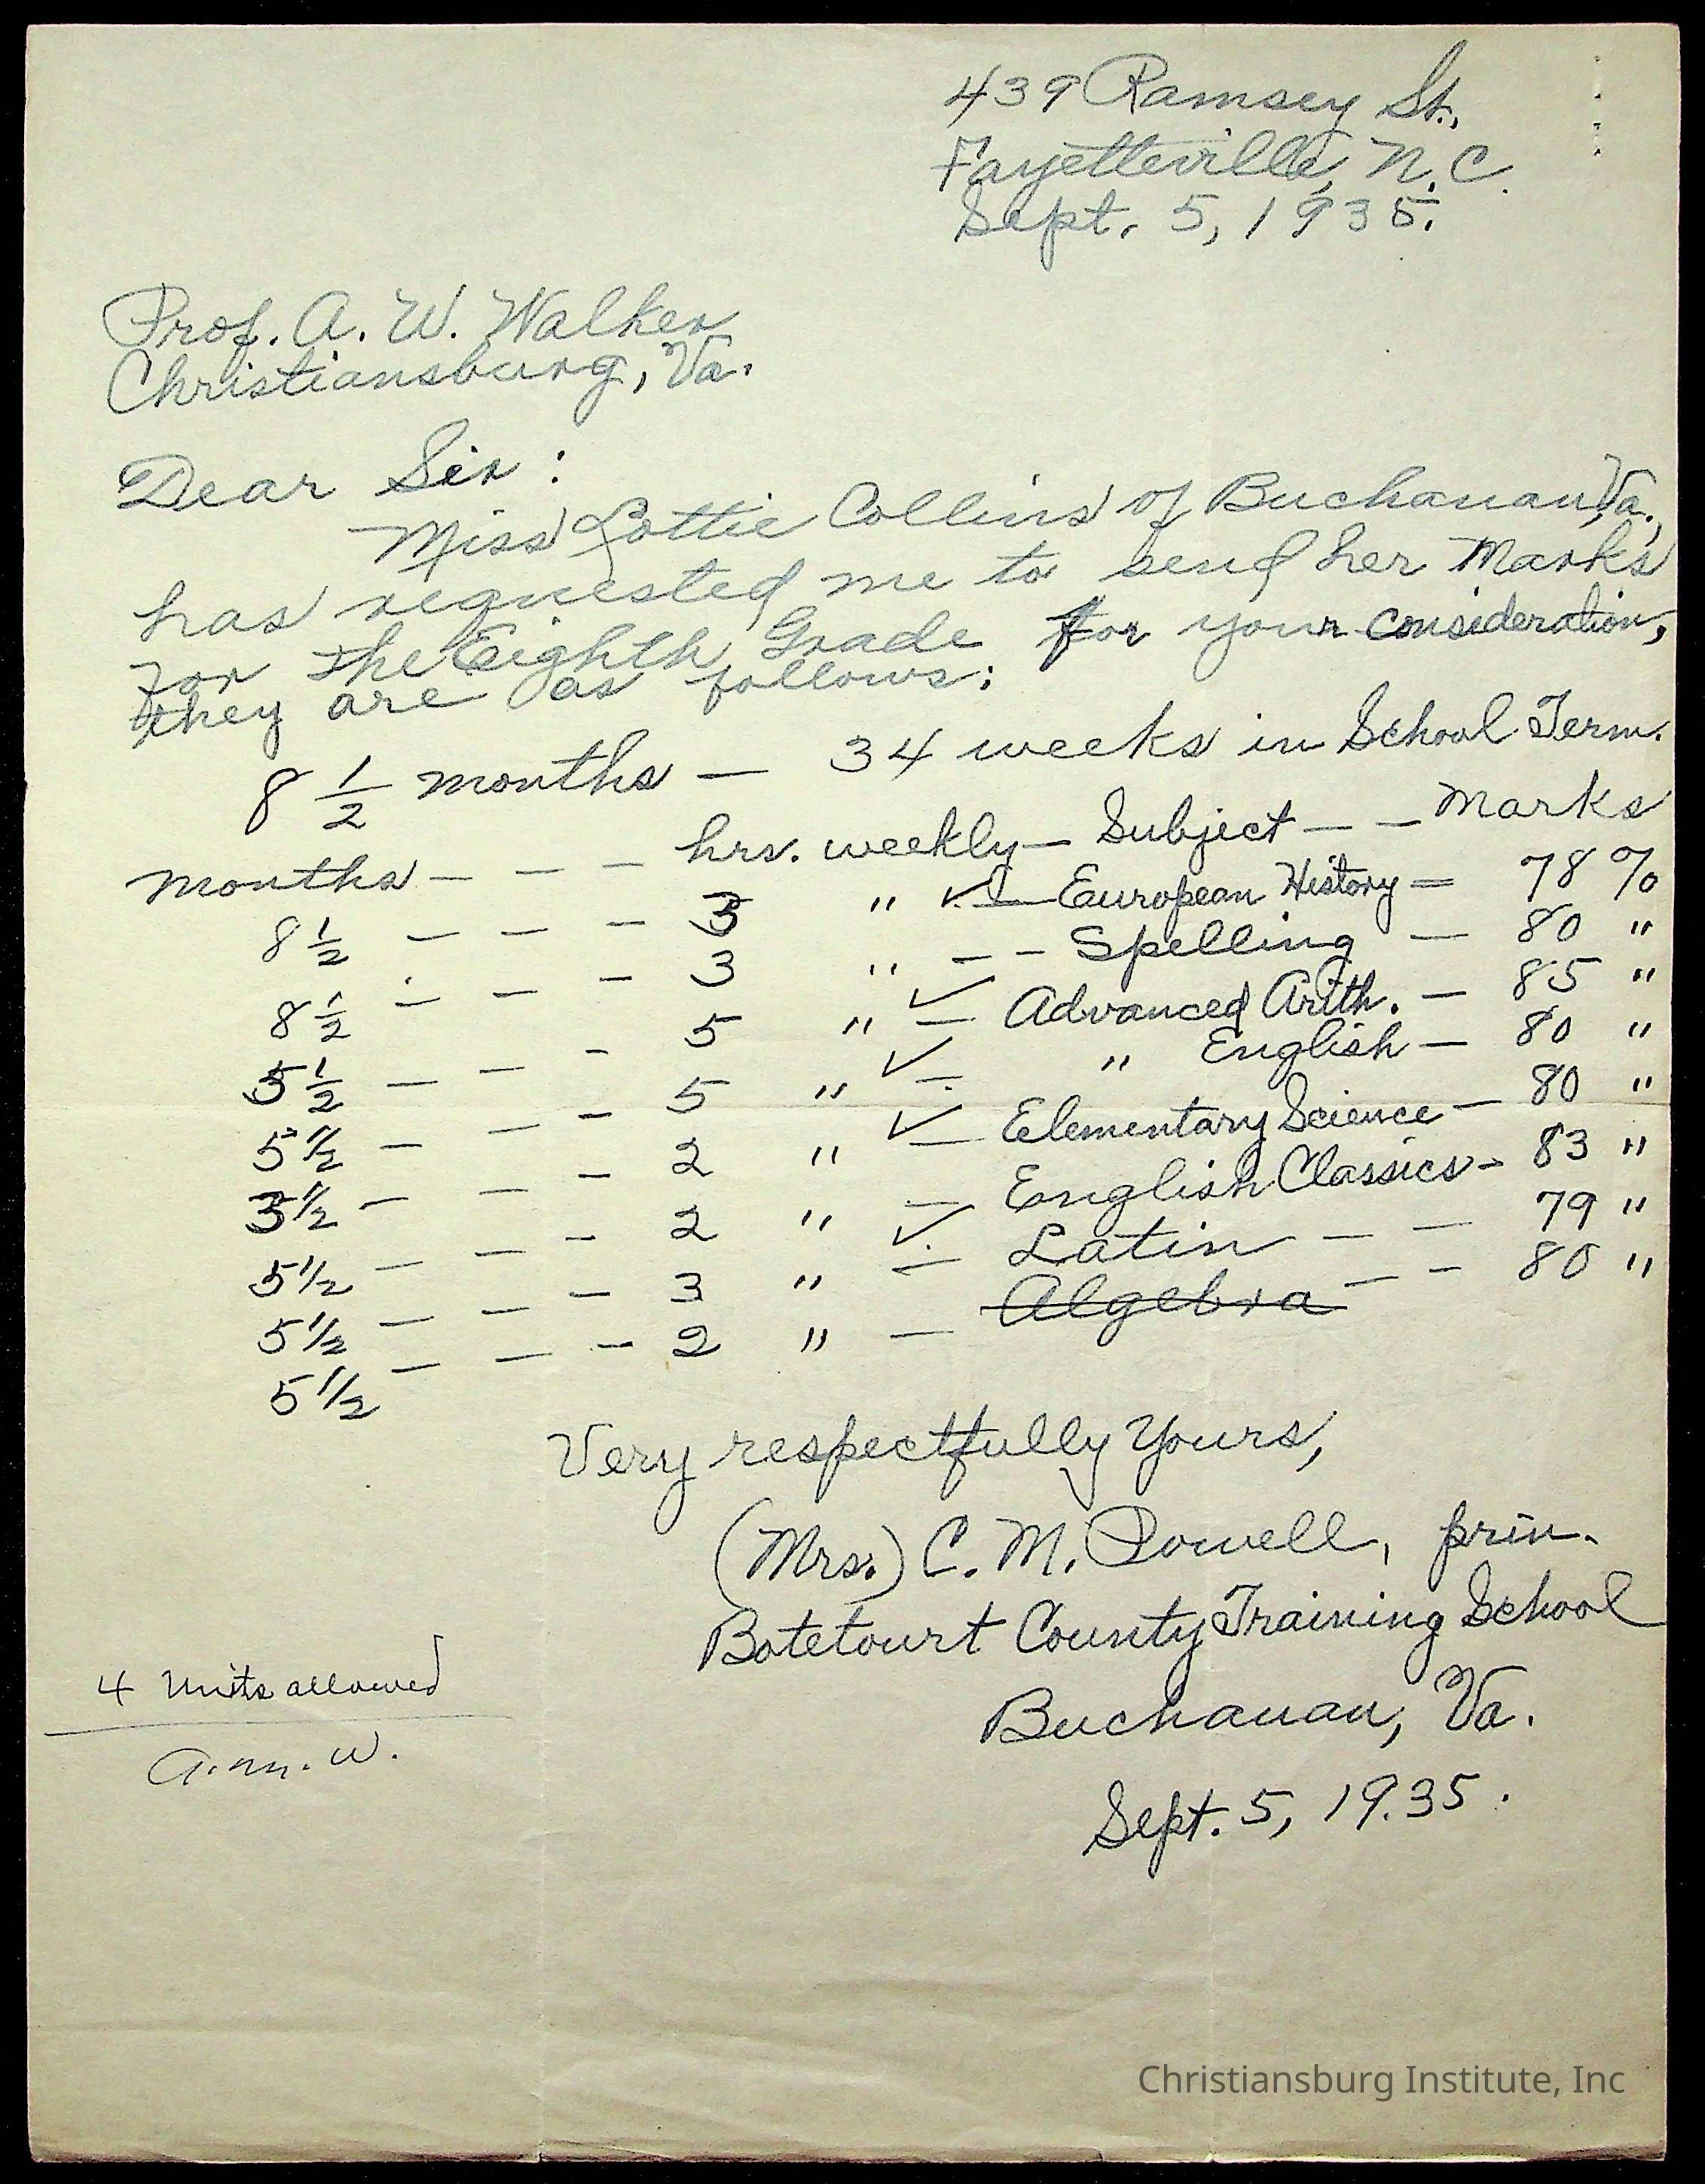 439 Ramsey St.,
Fayetteville, N.C.
Sept. 5, 1935.
Prof. A. W. Walker
Christiansburg, Va.
Dear Sir:
Miss Lottie Collins of Buchanan, Va.,
has requested me to send her Marks
for the Eighth Grade for your consideration,
they are as follows:
8 1/2 months — 34 weeks in School Term.
months — — — hrs. weekly — Subject — — Marks
8 1/2 — — — 3 " ✓ — European History = 78 %
8 1/2 — — — 3 " — — Spelling — 80 "
5 1/2 — — — 5 " ✓ — Advanced Arith. — 85 "
5 1/2 — — — 5 " ✓ — " English — 80 "
3 1/2 — — — 2 " ✓ — Elementary Science — 80 "
5 1/2 — — — 2 " — English Classics - 83 "
5 1/2 — — — 3 " ✓ — Latin — — 79 "
5 1/2 — — — 2 " — Algebra — — 80 "
Very respectfully Yours,
(Mrs.) C. M. Powell, prin.
Botetourt County Training School
Buchanan, Va.
Sept. 5, 19.35.
4 Units allowed
A. M. W.
Christiansburg Institute, Inc